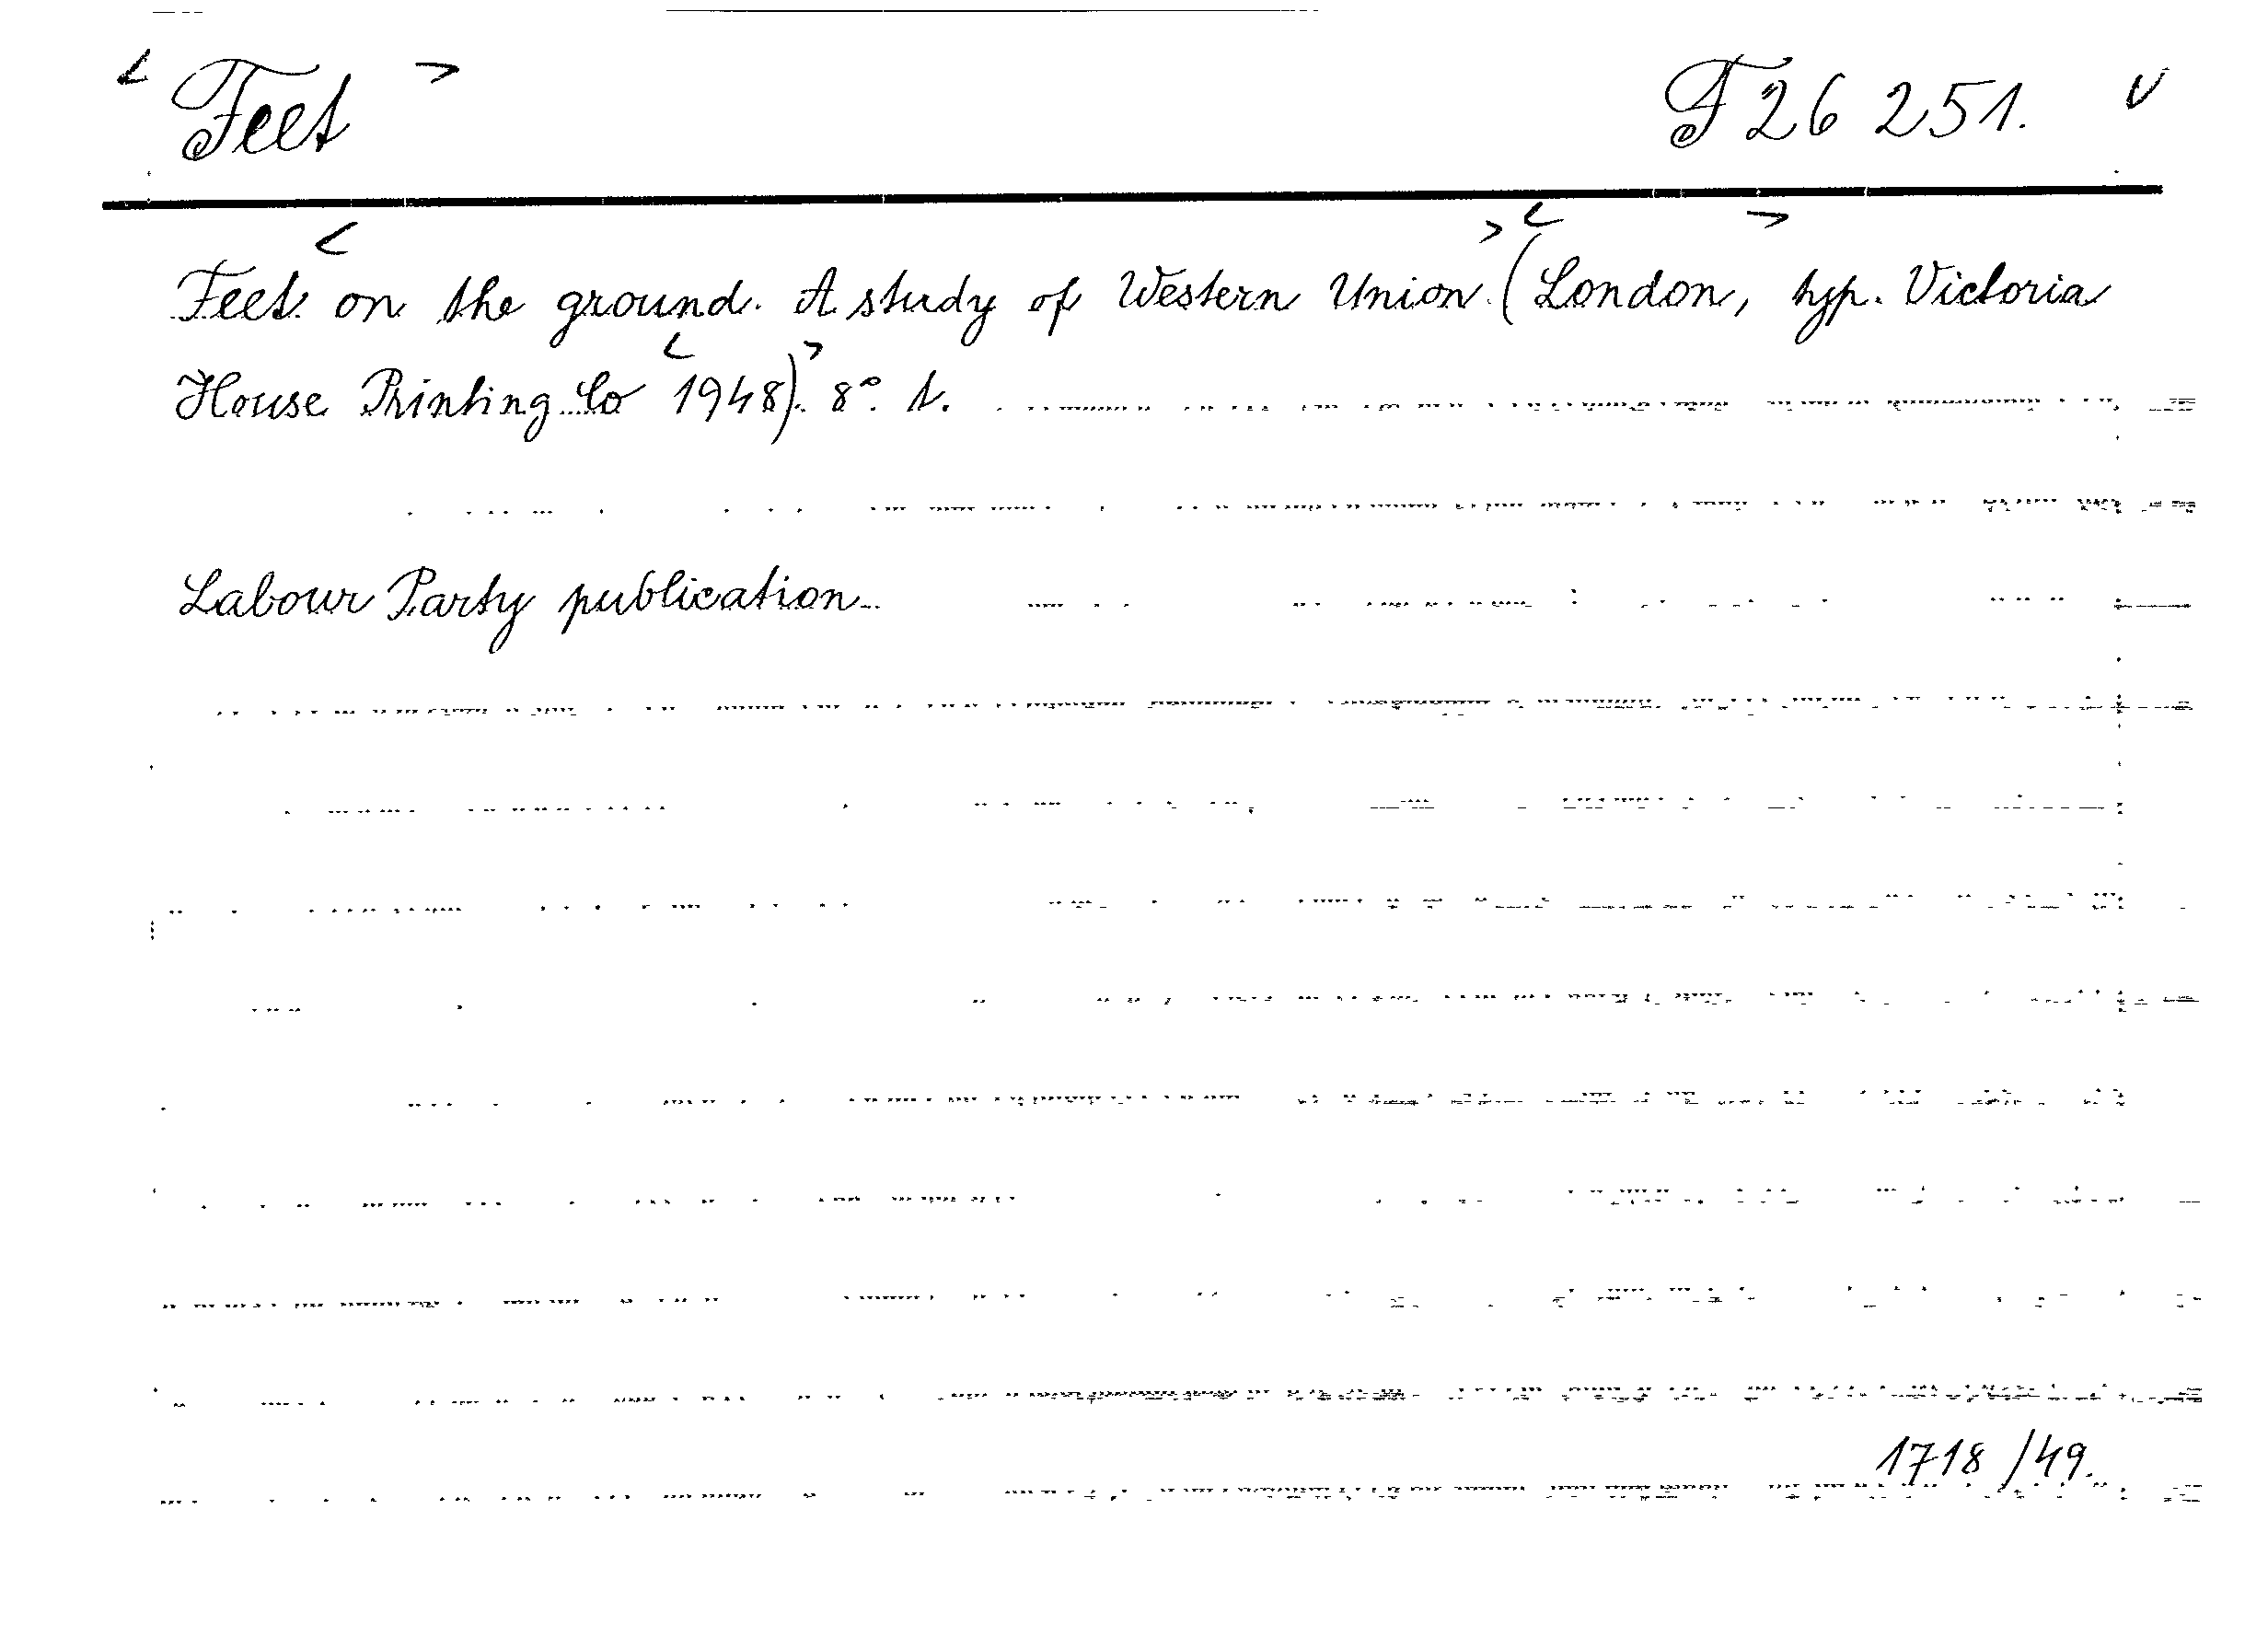 Feet F 26 251.
Feet on the ground. A study of Western Union. (London, typ. Victoria
House Printing Co 1948). 8°. 1.
Labour Party publication
1718/49.